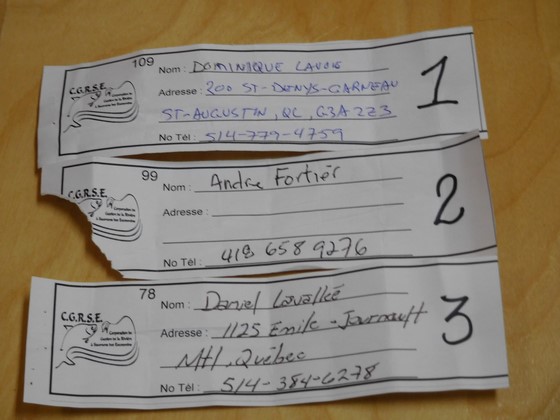 109
C.G.R.S.E.
Nom : DOMINIQUE LAVOIE
Adresse : 200 ST-DENYS-GARNEAU
ST-AUGUSTIN, QC, G3A 2Z3
No Tél : 514-779-4759
1
99
G.R.S.E.
Nom : Andre Fortier
Adresse :
No Tél : 418 658 9276
2
78
C.G.R.S.E.
Nom : Daniel Lavallée
Adresse : 1125 Emile - Journault
Mtl. Québec
No Tél : 514-384-6278
3